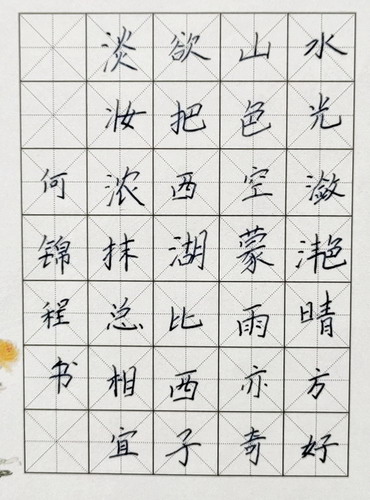 水光潋滟晴方好
山色空蒙雨亦奇
欲把西湖比西子
淡妆浓抹总相宜
何锦程书